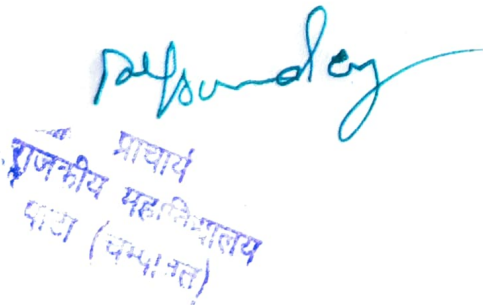 प्राचार्य
राजकीय महाविद्यालय
पाटी (चम्पावत)